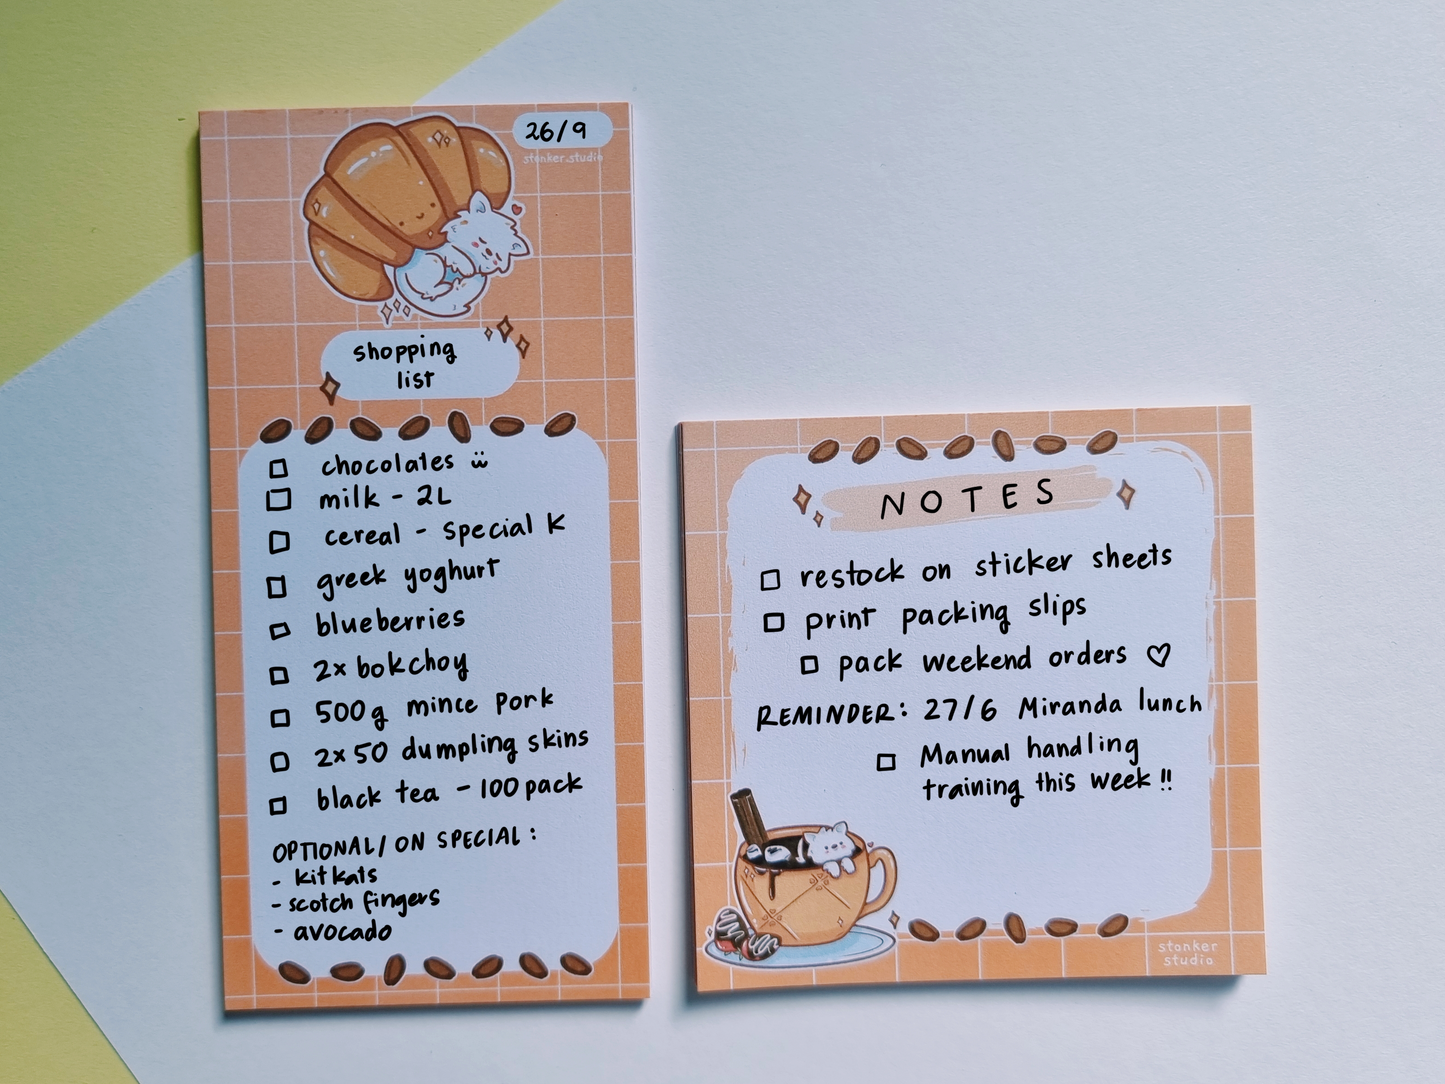 26/9
stonker.studio
shopping
list
chocolates
milk - 2L
cereal - special K
greek yoghurt
blueberries
2x bokchoy
500g mince pork
2x50 dumpling skins
black tea - 100 pack
OPTIONAL/ON SPECIAL:
- kitkats
- scotch fingers
- avocado
NOTES
restock on sticker sheets
print packing slips
pack weekend orders ♡
REMINDER: 27/6 Miranda lunch
Manual handling
training this week!!
stonker
studio